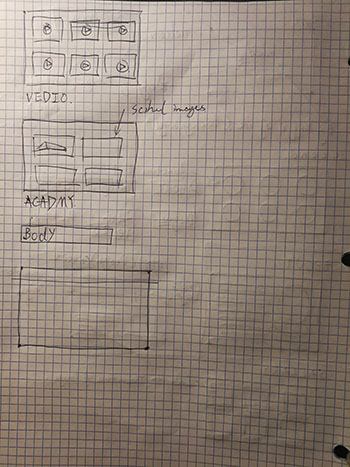 VEDIO.
images
ACADMY.
Body